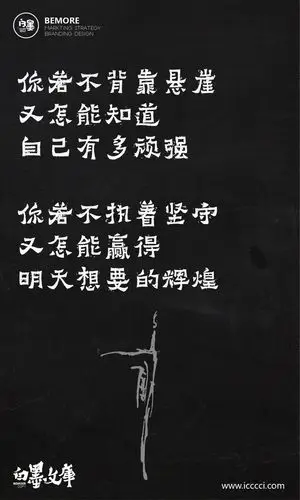 BEMORE
MARKTING STRATEGY
BRANDING DESIGN
你若不背靠悬崖
又怎能知道
自己有多顽强
你若不执着坚守
又怎能赢得
明天想要的辉煌
白墨文库
BEMORE
www.icccci.com